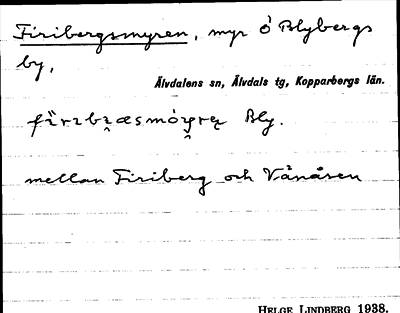 Firibergsmyren, myr ö Blybergs
by,
Älvdalens sn, Älvdals tg, Kopparbergs län.
Bly.
mellan Firiberg och Vånåsen
HELGE LINDBERG 1938.